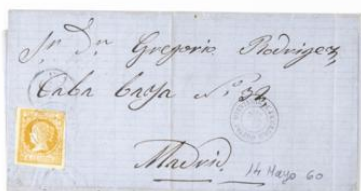 Sr. Dn. Gregorio Rodriguez
Caba baja Nº 32
Madrid
14 Mayo 60